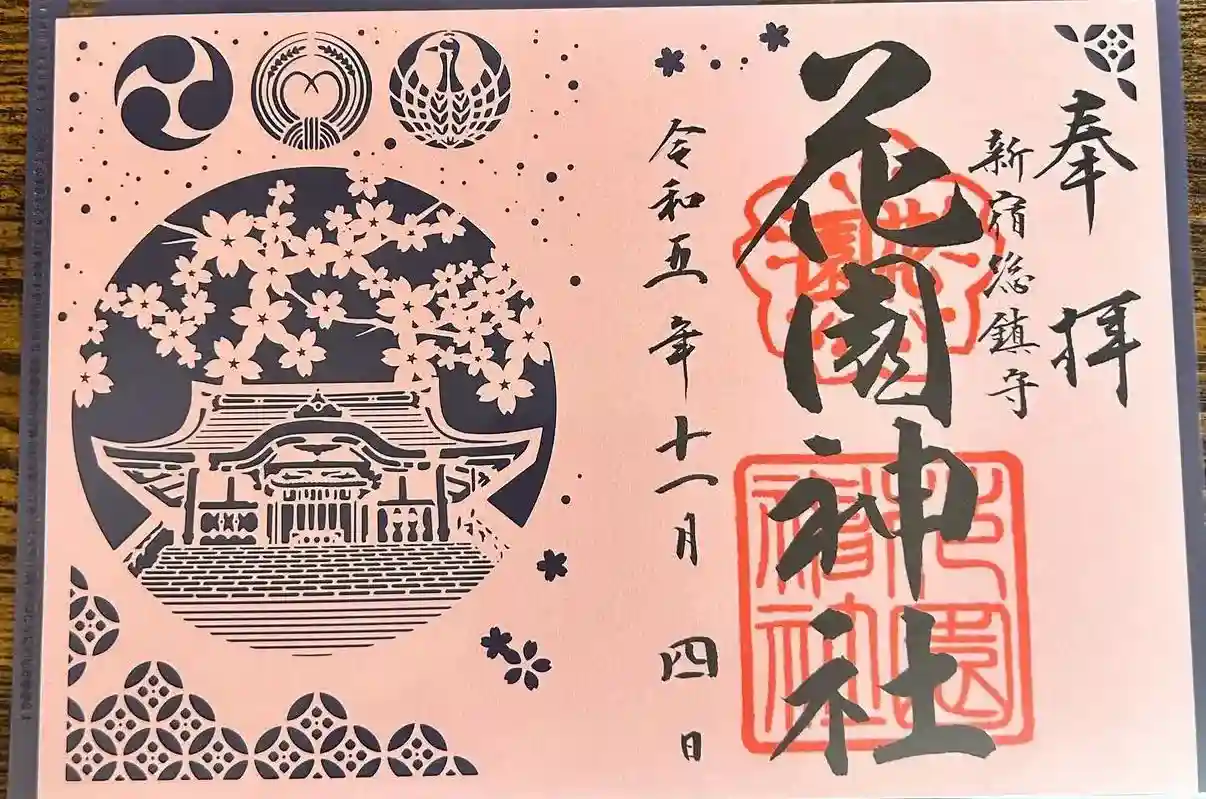 奉拝
新宿総鎮守
花園神社
令和五年十一月四日
花園神社